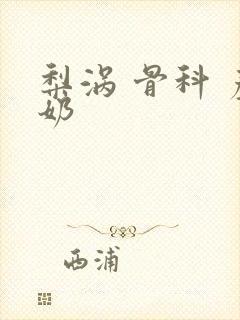 梨涡 骨科
奶
西浦